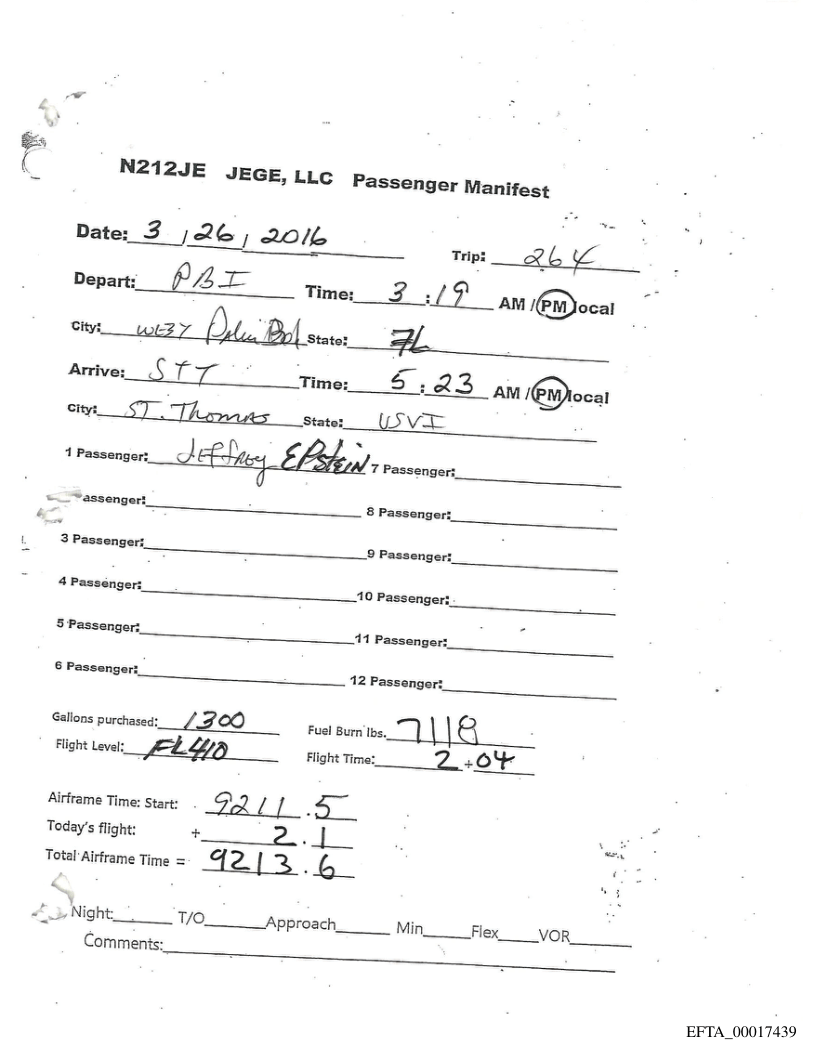 N212JE JEGE, LLC Passenger Manifest
Date: 3 / 26 / 2016 Trip: 264
Depart: PBI Time: 3 : 19 AM / PM local
City: WEST Palm Bch State: FL
Arrive: STT Time: 5 : 23 AM / PM local
City: ST. Thomas State: USVI
1 Passenger: Jeffrey EPstEIN 7 Passenger:
assenger: 8 Passenger:
3 Passenger: 9 Passenger:
4 Passenger: 10 Passenger:
5 Passenger: 11 Passenger:
6 Passenger: 12 Passenger:
Gallons purchased: 1300 Fuel Burn lbs. 7118
Flight Level: FL410 Flight Time: 2 + 04
Airframe Time: Start: 9211.5
Today's flight: + 2.1
Total Airframe Time = 9213.6
Night: T/O Approach Min Flex VOR
Comments:
EFTA_00017439